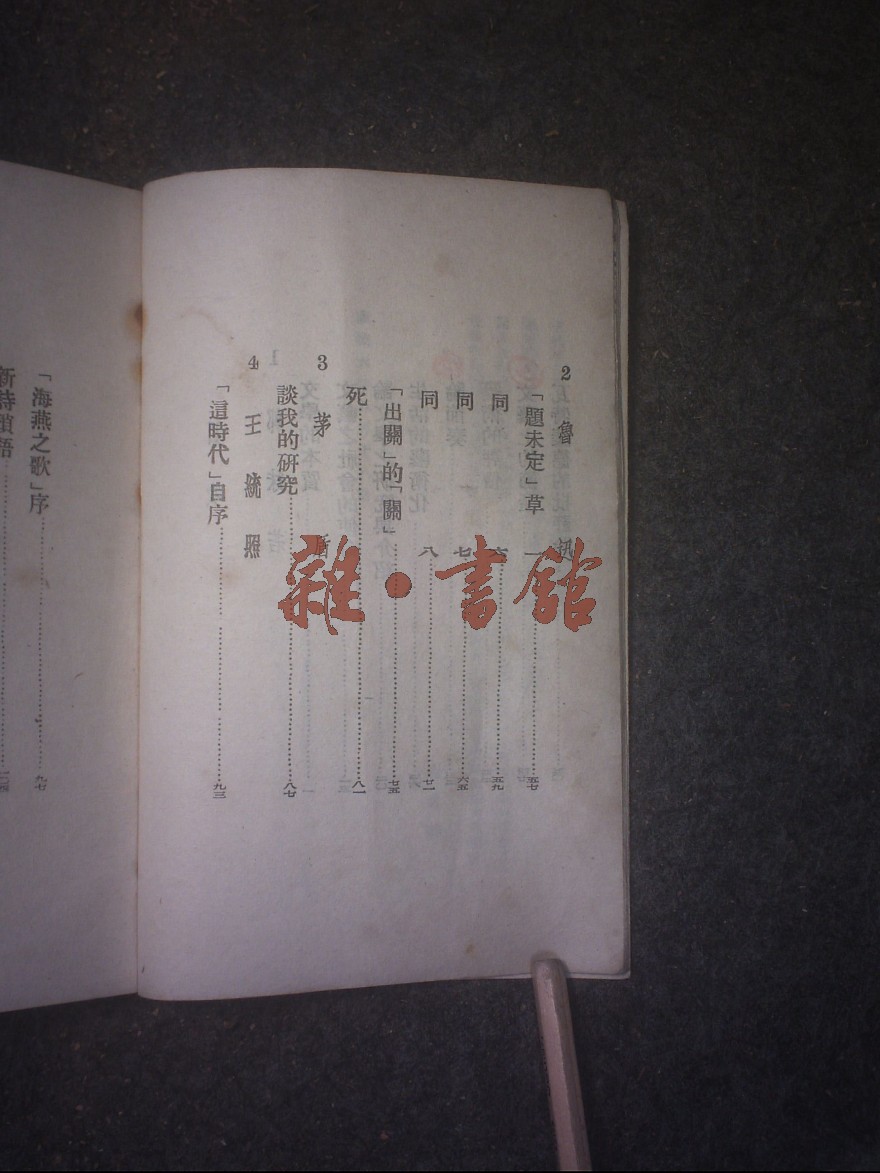 2 魯 迅
「題未定」草 一……五七
同 六……五九
同 七……六五
同 八……七一
「出關」的「關」……七五
死……八一
3 茅 盾
談我的研究……八七
4 王 統 照
「這時代」自序……九三
「海燕之歌」序……九七
新詩瑣語……
雜·書館